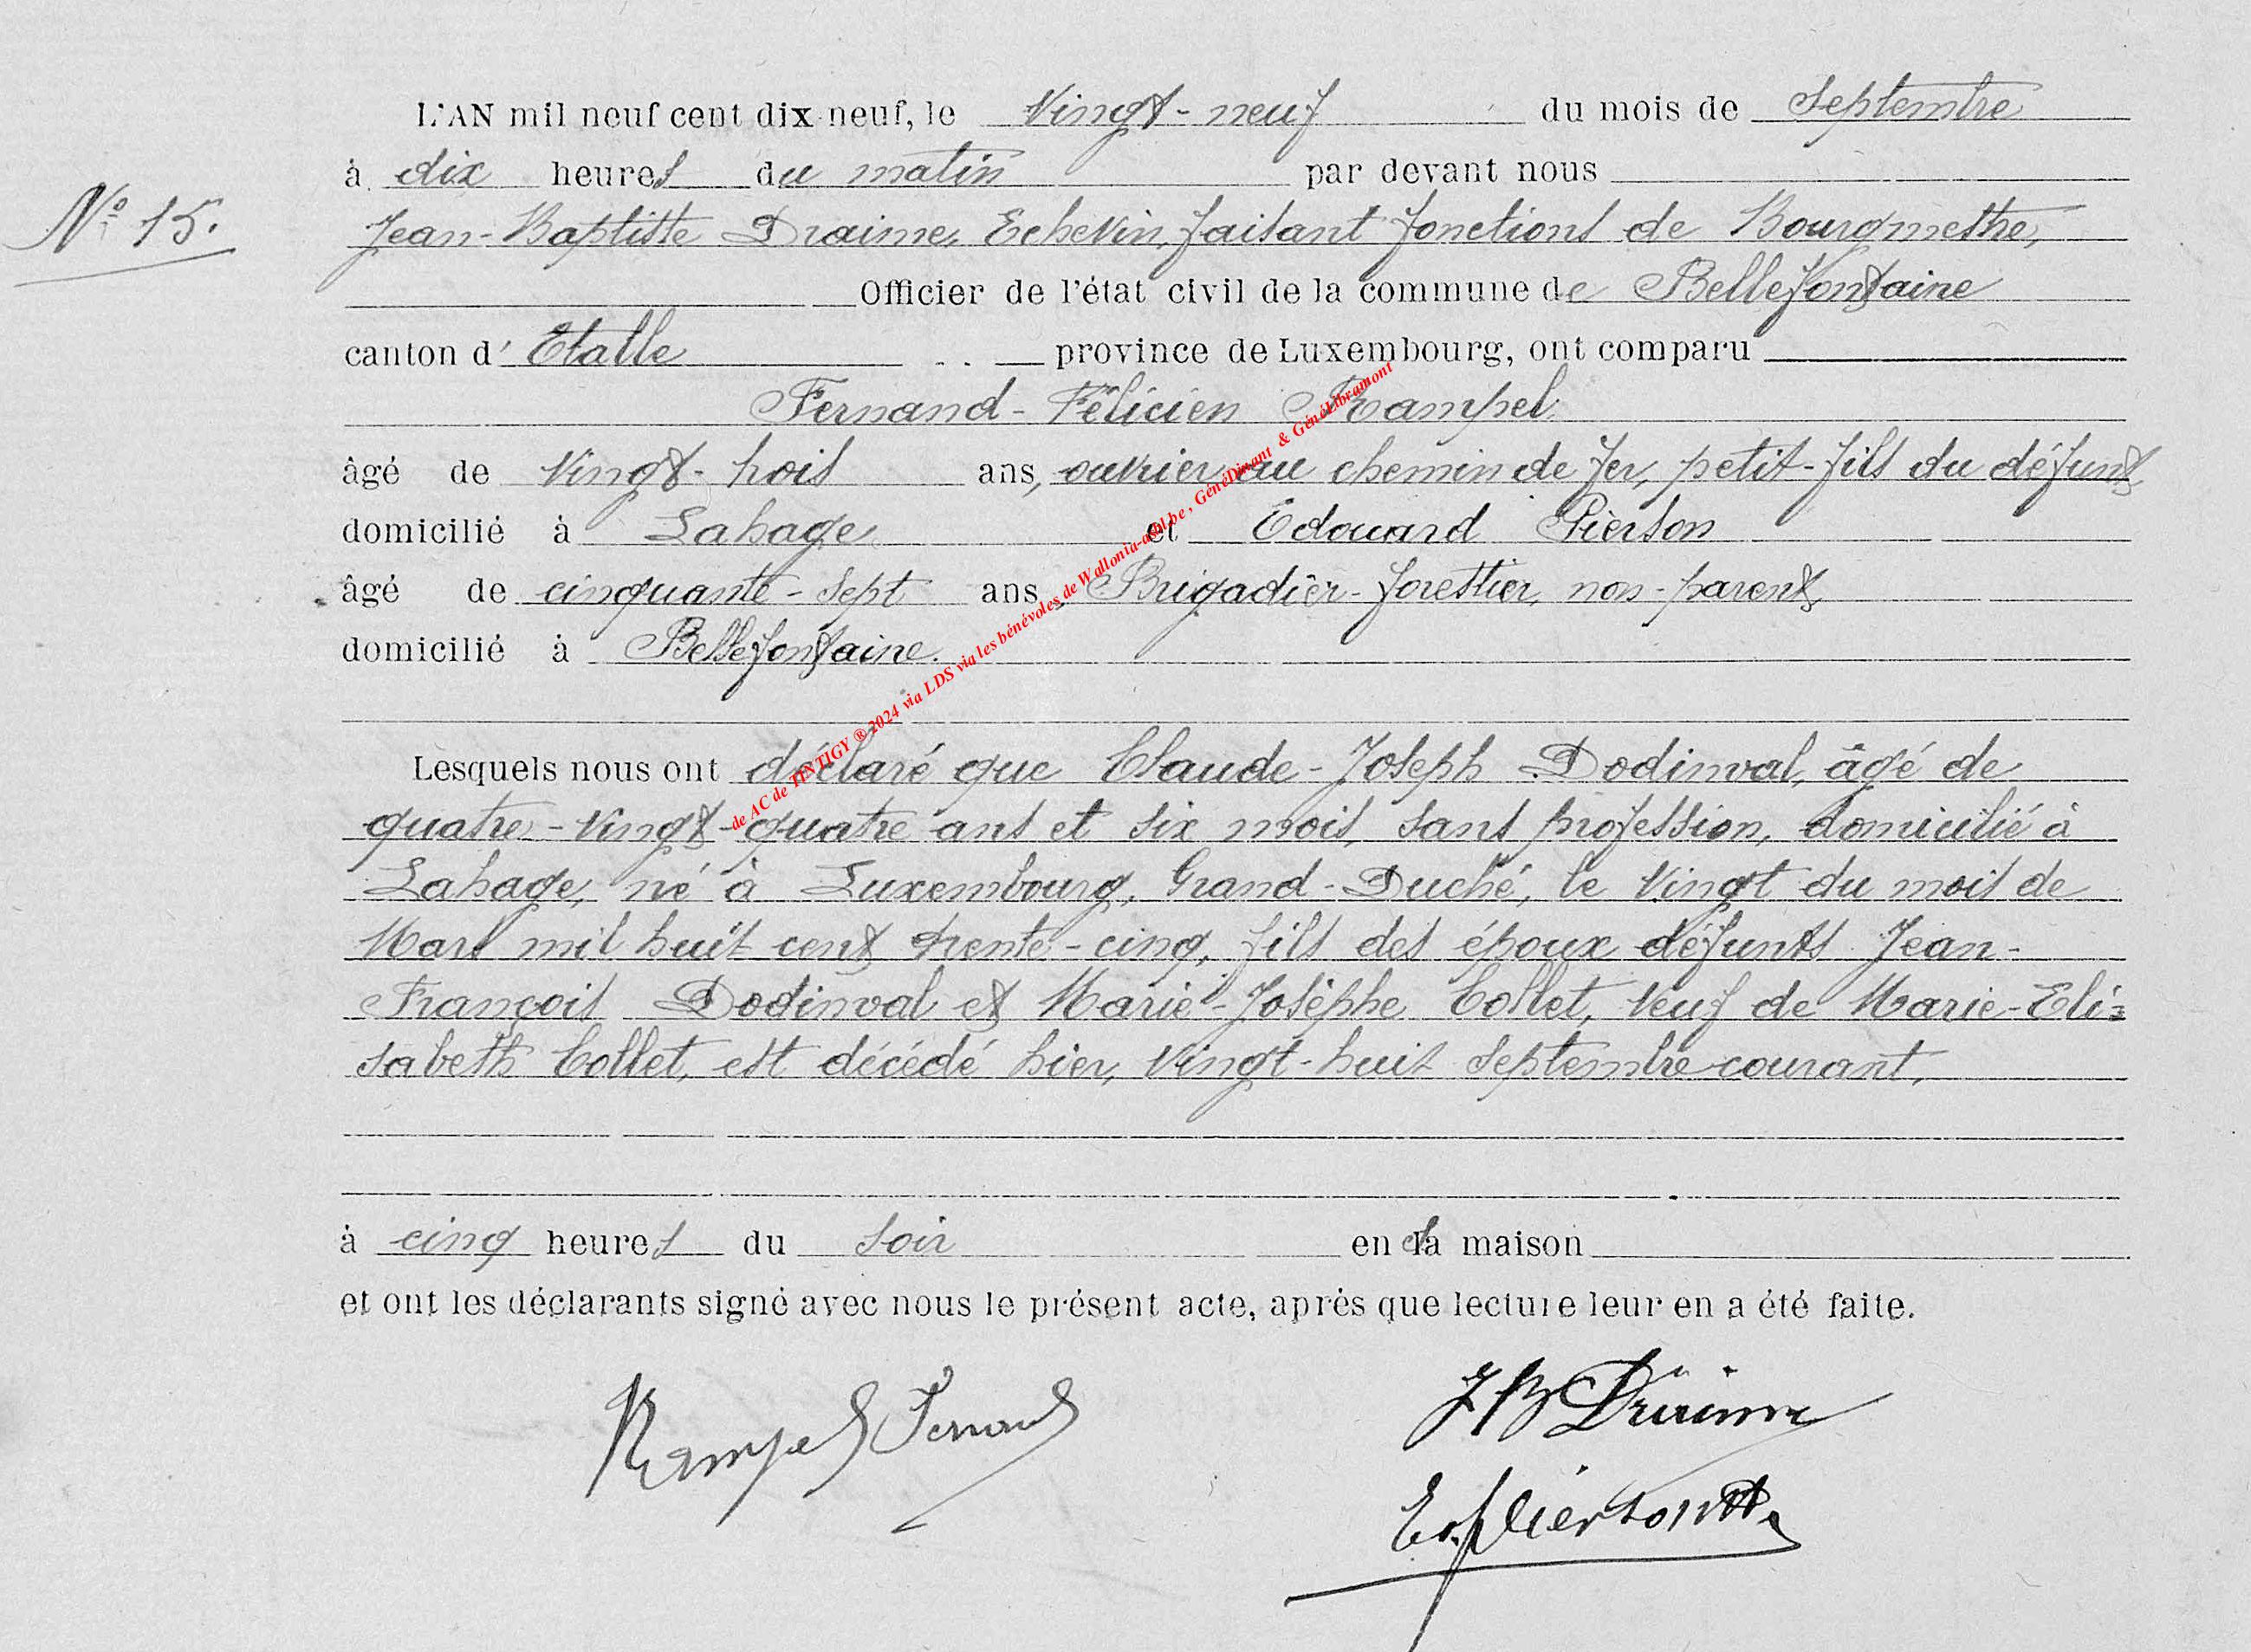 L'AN mil neuf cent dix neuf, le Vingt-neuf du mois de Septembre
à dix heures du matin par devant nous
N° 15.
Jean-Baptiste Draime, Echevin, faisant fonctions de Bourgmestre,
Officier de l'état civil de la commune de Bellefontaine
canton d' Etalle province de Luxembourg, ont comparu
Fernand-Félicien Rampel
âgé de Vingt-trois ans, ouvrier au chemin de fer, petit-fils du défunt
domicilié à Lahage et Edouard Pierson
âgé de cinquante-sept ans, Brigadier-forestier, non-parent,
domicilié à Bellefontaine.
Lesquels nous ont déclaré que Claude-Joseph Dodinval, âgé de
quatre-vingt-quatre ans et six mois, sans profession, domicilié à
Lahage, né à Luxembourg, Grand-Duché, le Vingt du mois de
Mars mil huit cent trente-cinq, fils des époux défunts Jean-
François Dodinval et Marie-Josèphe Collet, veuf de Marie-Eli=
sabeth Collet, est décédé hier, vingt-huit septembre courant,
à cinq heures du soir en sa maison
et ont les déclarants signé avec nous le présent acte, après que lecture leur en a été faite.
Rampel Fernand
JB Draime
Ed. Pierson
de AC de TINTIGY ® 2024 via LDS via les bénévoles de Wallonia-asbl.be , GénéDinant & GénéLibramont